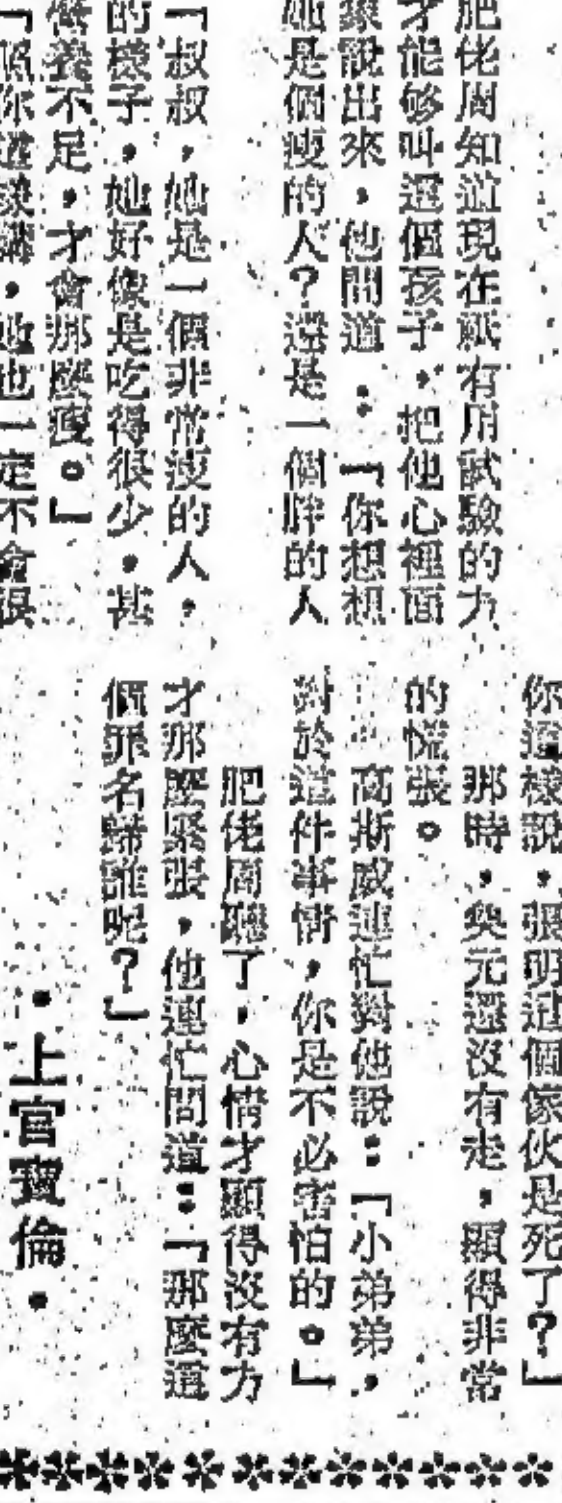 肥佬周知道現在祇有用試驗的力
才能够叫這個孩子,把他心裡面
象說出來,他問道:「你想想
她是個瘦的人?還是一個胖的人
「叔叔,她是一個非常瘦的人,
的樣子,她好像是吃得很少,甚
營養不足,才會那麼瘦。」
「照你這樣講,她也一定不會很
你這樣說,張明這個傢伙是死了?」
那時,奂元還沒有走,顯得非常
的慌張。
高斯威連忙對他說:「小弟弟,
對於這件事情,你是不必害怕的。」
肥佬周聽了,心情才顯得沒有方
才那麼緊張,他連忙問道:「那麼這
個罪名歸誰呢?」
•上官寶倫•